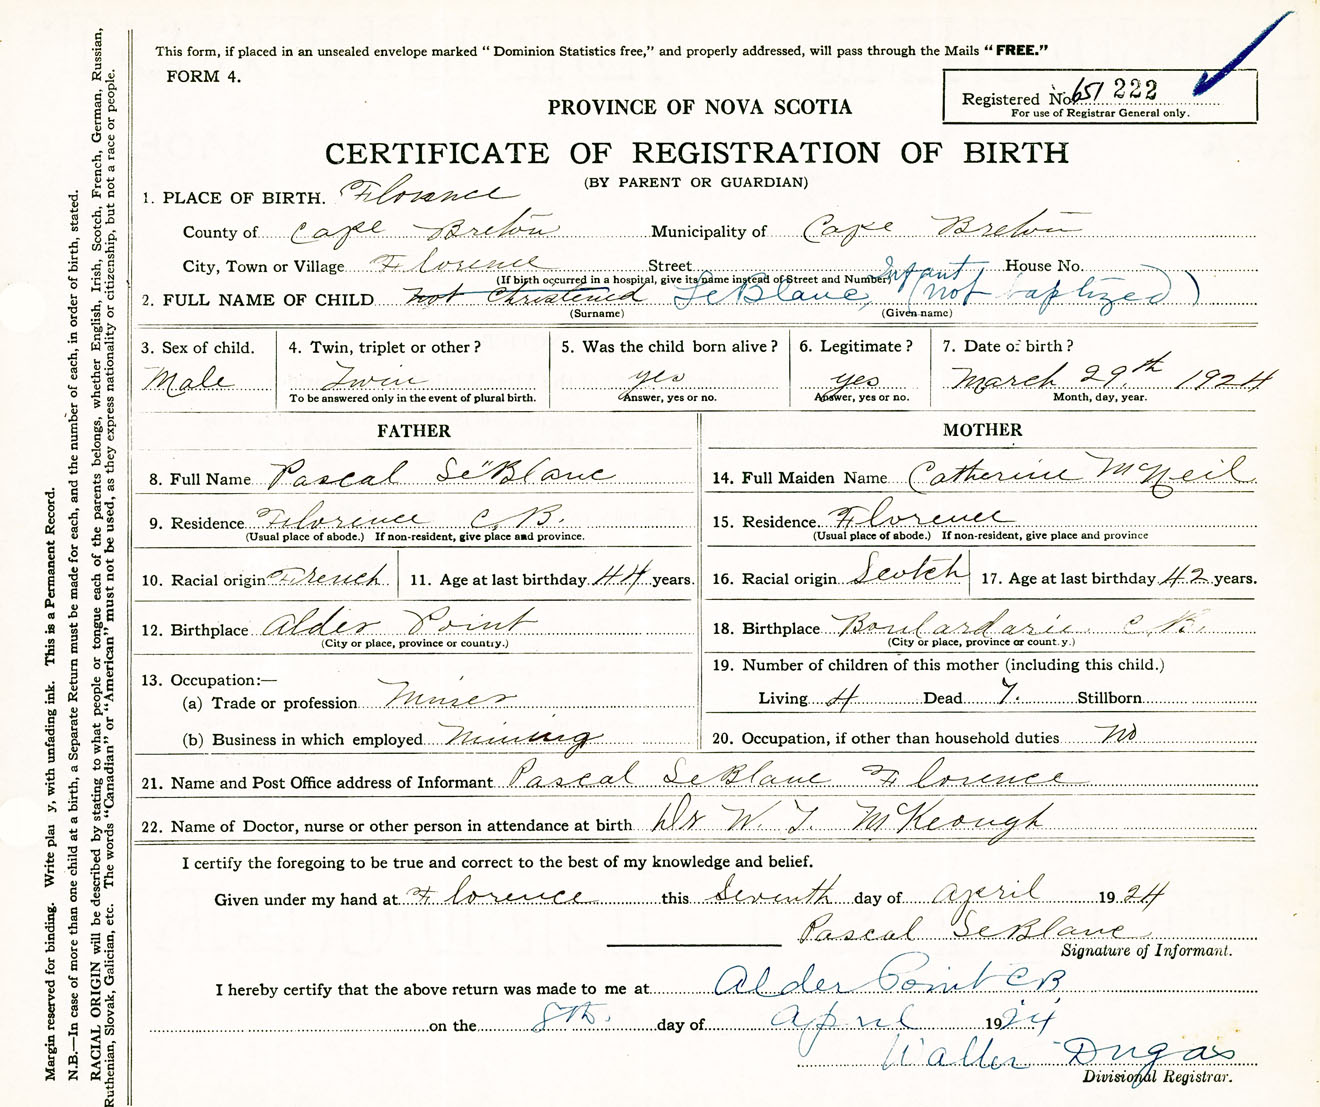 This form, if placed in an unsealed envelope marked "Dominion Statistics free," and properly addressed, will pass through the Mails "FREE."
FORM 4.
Registered No. 651 222
For use of Registrar General only.
PROVINCE OF NOVA SCOTIA
CERTIFICATE OF REGISTRATION OF BIRTH
(BY PARENT OR GUARDIAN)
1. PLACE OF BIRTH. Florence
County of Cape Breton Municipality of Cape Breton
City, Town or Village Florence Street House No.
(If birth occurred in a hospital, give its name instead of Street and Number)
2. FULL NAME OF CHILD not Christened LeBlanc, Infant (not baptized)
(Surname) (Given name)
3. Sex of child. 4. Twin, triplet or other? 5. Was the child born alive? 6. Legitimate? 7. Date of birth?
Male Twin yes yes March 29th 1924
To be answered only in the event of plural birth. Answer, yes or no. Answer, yes or no. Month, day, year.
FATHER MOTHER
8. Full Name Pascal LeBlanc 14. Full Maiden Name Catherine McNeil
9. Residence Florence C.B. 15. Residence Florence
(Usual place of abode.) If non-resident, give place and province. (Usual place of abode.) If non-resident, give place and province
10. Racial origin French 11. Age at last birthday 44 years. 16. Racial origin Scotch 17. Age at last birthday 42 years.
12. Birthplace Alder Point 18. Birthplace Boulardarie C.B.
(City or place, province or country.) (City or place, province or county.)
19. Number of children of this mother (including this child.)
13. Occupation:—
(a) Trade or profession Miner Living 4 Dead 7. Stillborn
(b) Business in which employed Mining 20. Occupation, if other than household duties No
21. Name and Post Office address of Informant Pascal LeBlanc Florence
22. Name of Doctor, nurse or other person in attendance at birth Dr W. J. McKeough
I certify the foregoing to be true and correct to the best of my knowledge and belief.
Given under my hand at Florence this Seventh day of April 1924
Pascal LeBlanc
Signature of Informant.
I hereby certify that the above return was made to me at Alder Point CB
on the 8th. day of April 1924
Walter Dugas
Divisional Registrar.
Margin reserved for binding. Write plai y, with unfading ink. This is a Permanent Record.
N.B.—In case of more than one child at a birth, a Separate Return must be made for each, and the number of each, in order of birth, stated.
RACIAL ORIGIN will be described by stating to what people or tongue each of the parents belongs, whether English, Irish, Scotch, French, German, Russian,
Ruthenian, Slovak, Galician, etc. The words "Canadian" or "American" must not be used, as they express nationality or citizenship, but not a race or people.